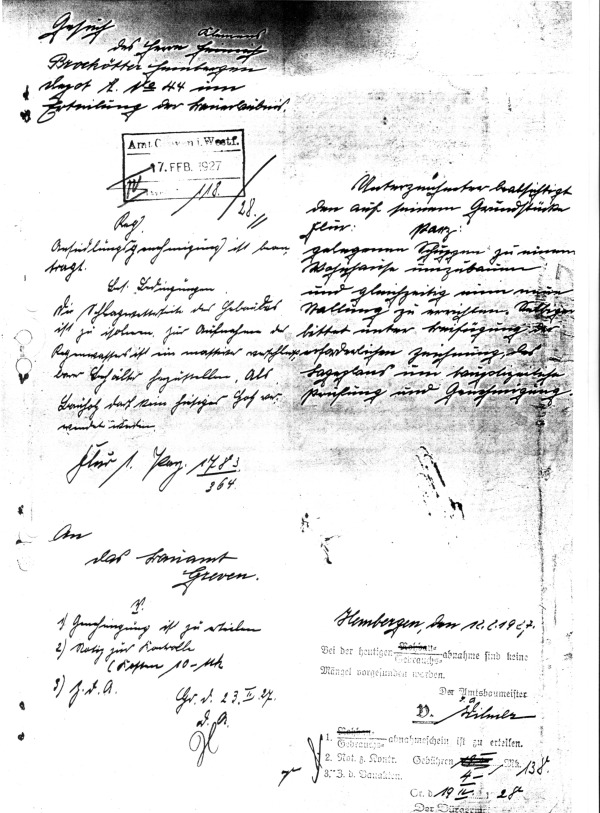 Gesuch
des Herrn Klemens
Brockötter Hembergen
Depot A. No 44 um
Erteilung der Bauerlaubnis.
Amt Greven i. Westf.
17. FEB. 1927
118.
28.
Ansiedlungsgenehmigung ist bean-
tragt.
Bes. Bedingungen
Die Schlagwetterseite des Gebäudes
ist zu isolieren, zur Aufnahme der
Regenwassers ist ein massiver verschließ-
barer Behälter herzustellen. Als
Bauholz darf kein Holz ver-
wendet werden
Flur 1. Parz. 178
364
An
das Bauamt
Greven.
V.
1) Genehmigung ist zu erteilen
2) Notiz zur Kontrolle
(Kosten 10 Mk
3) Z. d. A.
Gr. d. 23. II. 27.
D. A.
Unterzeichneter beabsichtigt
den auf seinem Grundstücke
Flur: Parz:
gelegenen Schuppen zu einem
Wohnhause umzubauen
und gleichzeitig eine neue
Stallung zu errichten. Selbiger
bittet unter Beifügung der
erforderlichen Zeichnung, des
Lageplans um baupolizeiliche
Prüfung und Genehmigung.
Hembergen, den 12.2.1927.
Bei der heutigen Rohbau-
Gebrauchs- abnahme sind keine
Mängel vorgefunden worden.
Der Amtsbaumeister
V.
1. Rohbau-
Gebrauchs- abnahmeschein ist zu erteilen.
2. Not. z. Kontr. Gebühren 4 Mk. 138
3. Z. d. Bauakten.
Gr. d. 19 IV. 28
Der Bürgerm.